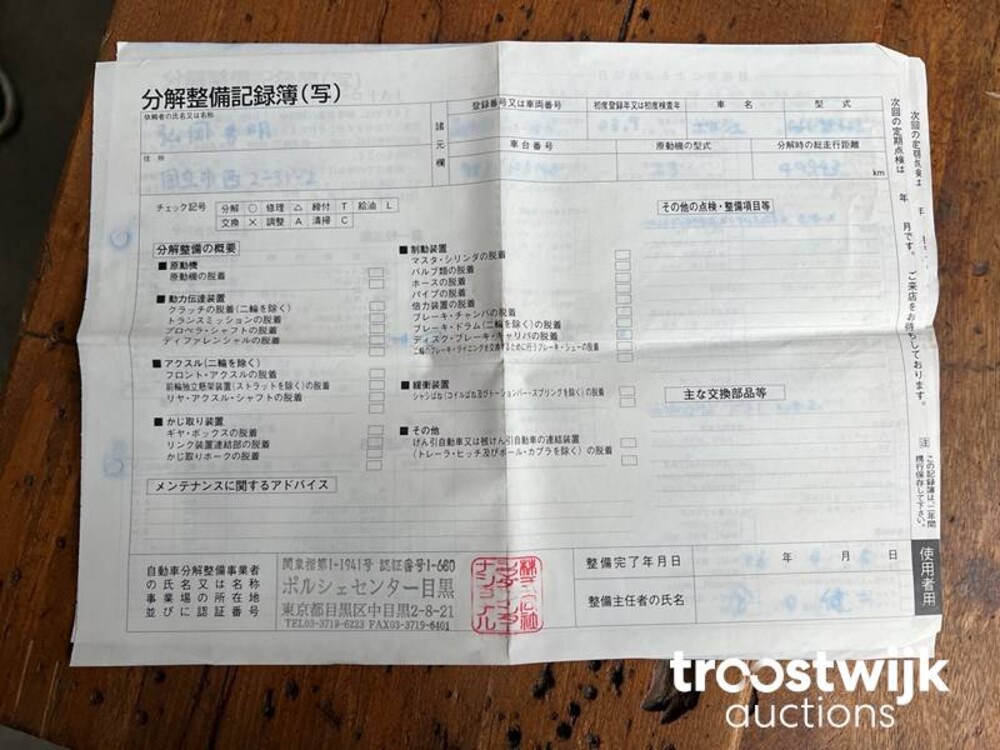 分解整備記録簿(写)
依頼者の氏名又は名称
住所
諸元欄
登録番号又は車両番号 初度登録年又は初度検査年 車名 型式
車台番号 原動機の型式 分解時の総走行距離
km
チェック記号 分解 ○ 修理 △ 締付 T 給油 L
交換 × 調整 A 清掃 C
分解整備の概要
■原動機
原動機の脱着
■動力伝達装置
クラッチの脱着(二輪を除く)
トランスミッションの脱着
プロペラ・シャフトの脱着
ディファレンシャルの脱着
■アクスル(二輪を除く)
フロント・アクスルの脱着
前輪独立懸架装置(ストラットを除く)の脱着
リヤ・アクスル・シャフトの脱着
■かじ取り装置
ギヤ・ボックスの脱着
リンク装置連結部の脱着
かじ取りホークの脱着
■制動装置
マスタ・シリンダの脱着
バルブ類の脱着
ホースの脱着
パイプの脱着
倍力装置の脱着
ブレーキ・チャンバの脱着
ブレーキ・ドラム(二輪を除く)の脱着
ディスク・ブレーキ・キャリパの脱着
二輪のブレーキ・ライニングを交換するために行うブレーキ・シューの脱着
■緩衝装置
シャシばね(コイルばね及びトーションバー・スプリングを除く)の脱着
■その他
けん引自動車又は被けん引自動車の連結装置
(トレーラ・ヒッチ及びボール・カプラを除く)の脱着
その他の点検・整備項目等
主な交換部品等
メンテナンスに関するアドバイス
自動車分解整備事業者
の氏名又は名称
事業場の所在地
並びに認証番号
関東指第1-1941号 認証番号1-660
ポルシェセンター目黒
東京都目黒区中目黒2-8-21
TEL03-3719-6223 FAX03-3719-6401
整備完了年月日 年 月 日
整備主任者の氏名
次回の定期点検は 年 月です。 ご来店をお待ちしております。
次回の定期点検は 年
注 この記録簿は、二年間
携行保存して下さい。
使用者用
troostwijk
auctions